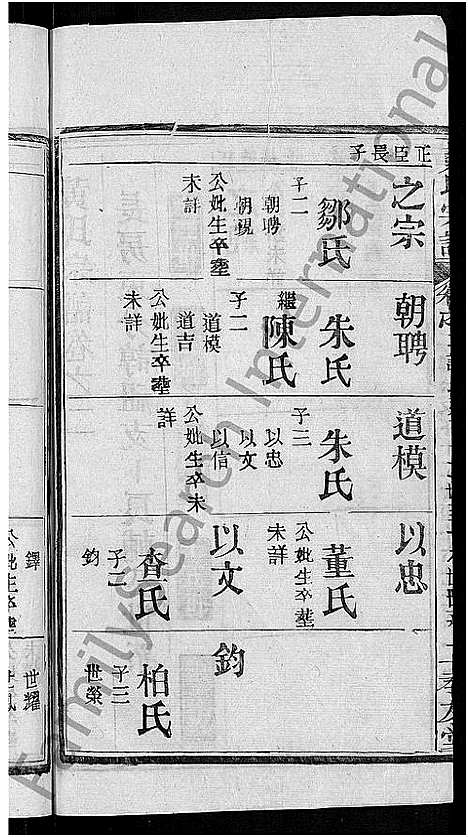 正臣長子
之宗
鄒氏
子二
朝聘
朝覲
公妣生卒塟
未詳
朝聘
朱氏
繼
陳氏
子二
道模
道吉
公妣生卒塟
未詳
道模
朱氏
子三
以忠
以文
以信
公妣生卒未
詳
以忠
董氏
公妣生卒塟
未詳
以文
查氏
子二
鈞
鈞
柏氏
子三
世榮
鐸
公妣生卒塟
世耀
Familysearch International